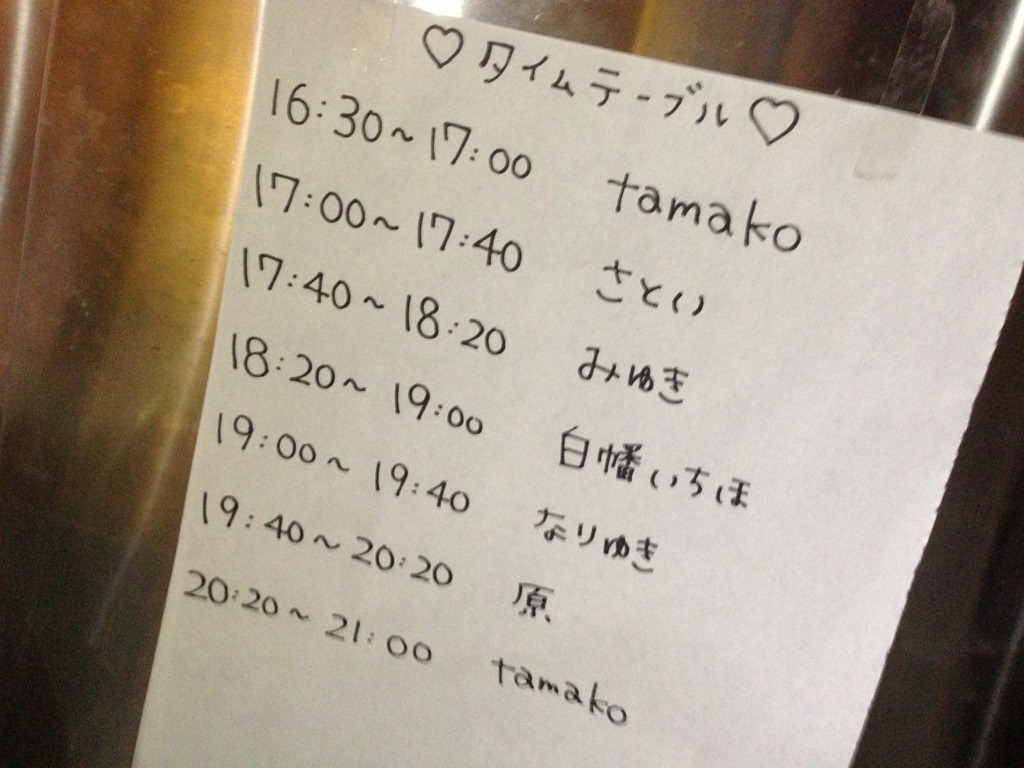 ♡タイムテーブル♡
16:30~17:00 tamako
17:00~17:40 さとい
17:40~18:20 みゆき
18:20~19:00 白幡いちほ
19:00~19:40 なりゆき
19:40~20:20 原
20:20~21:00 tamako